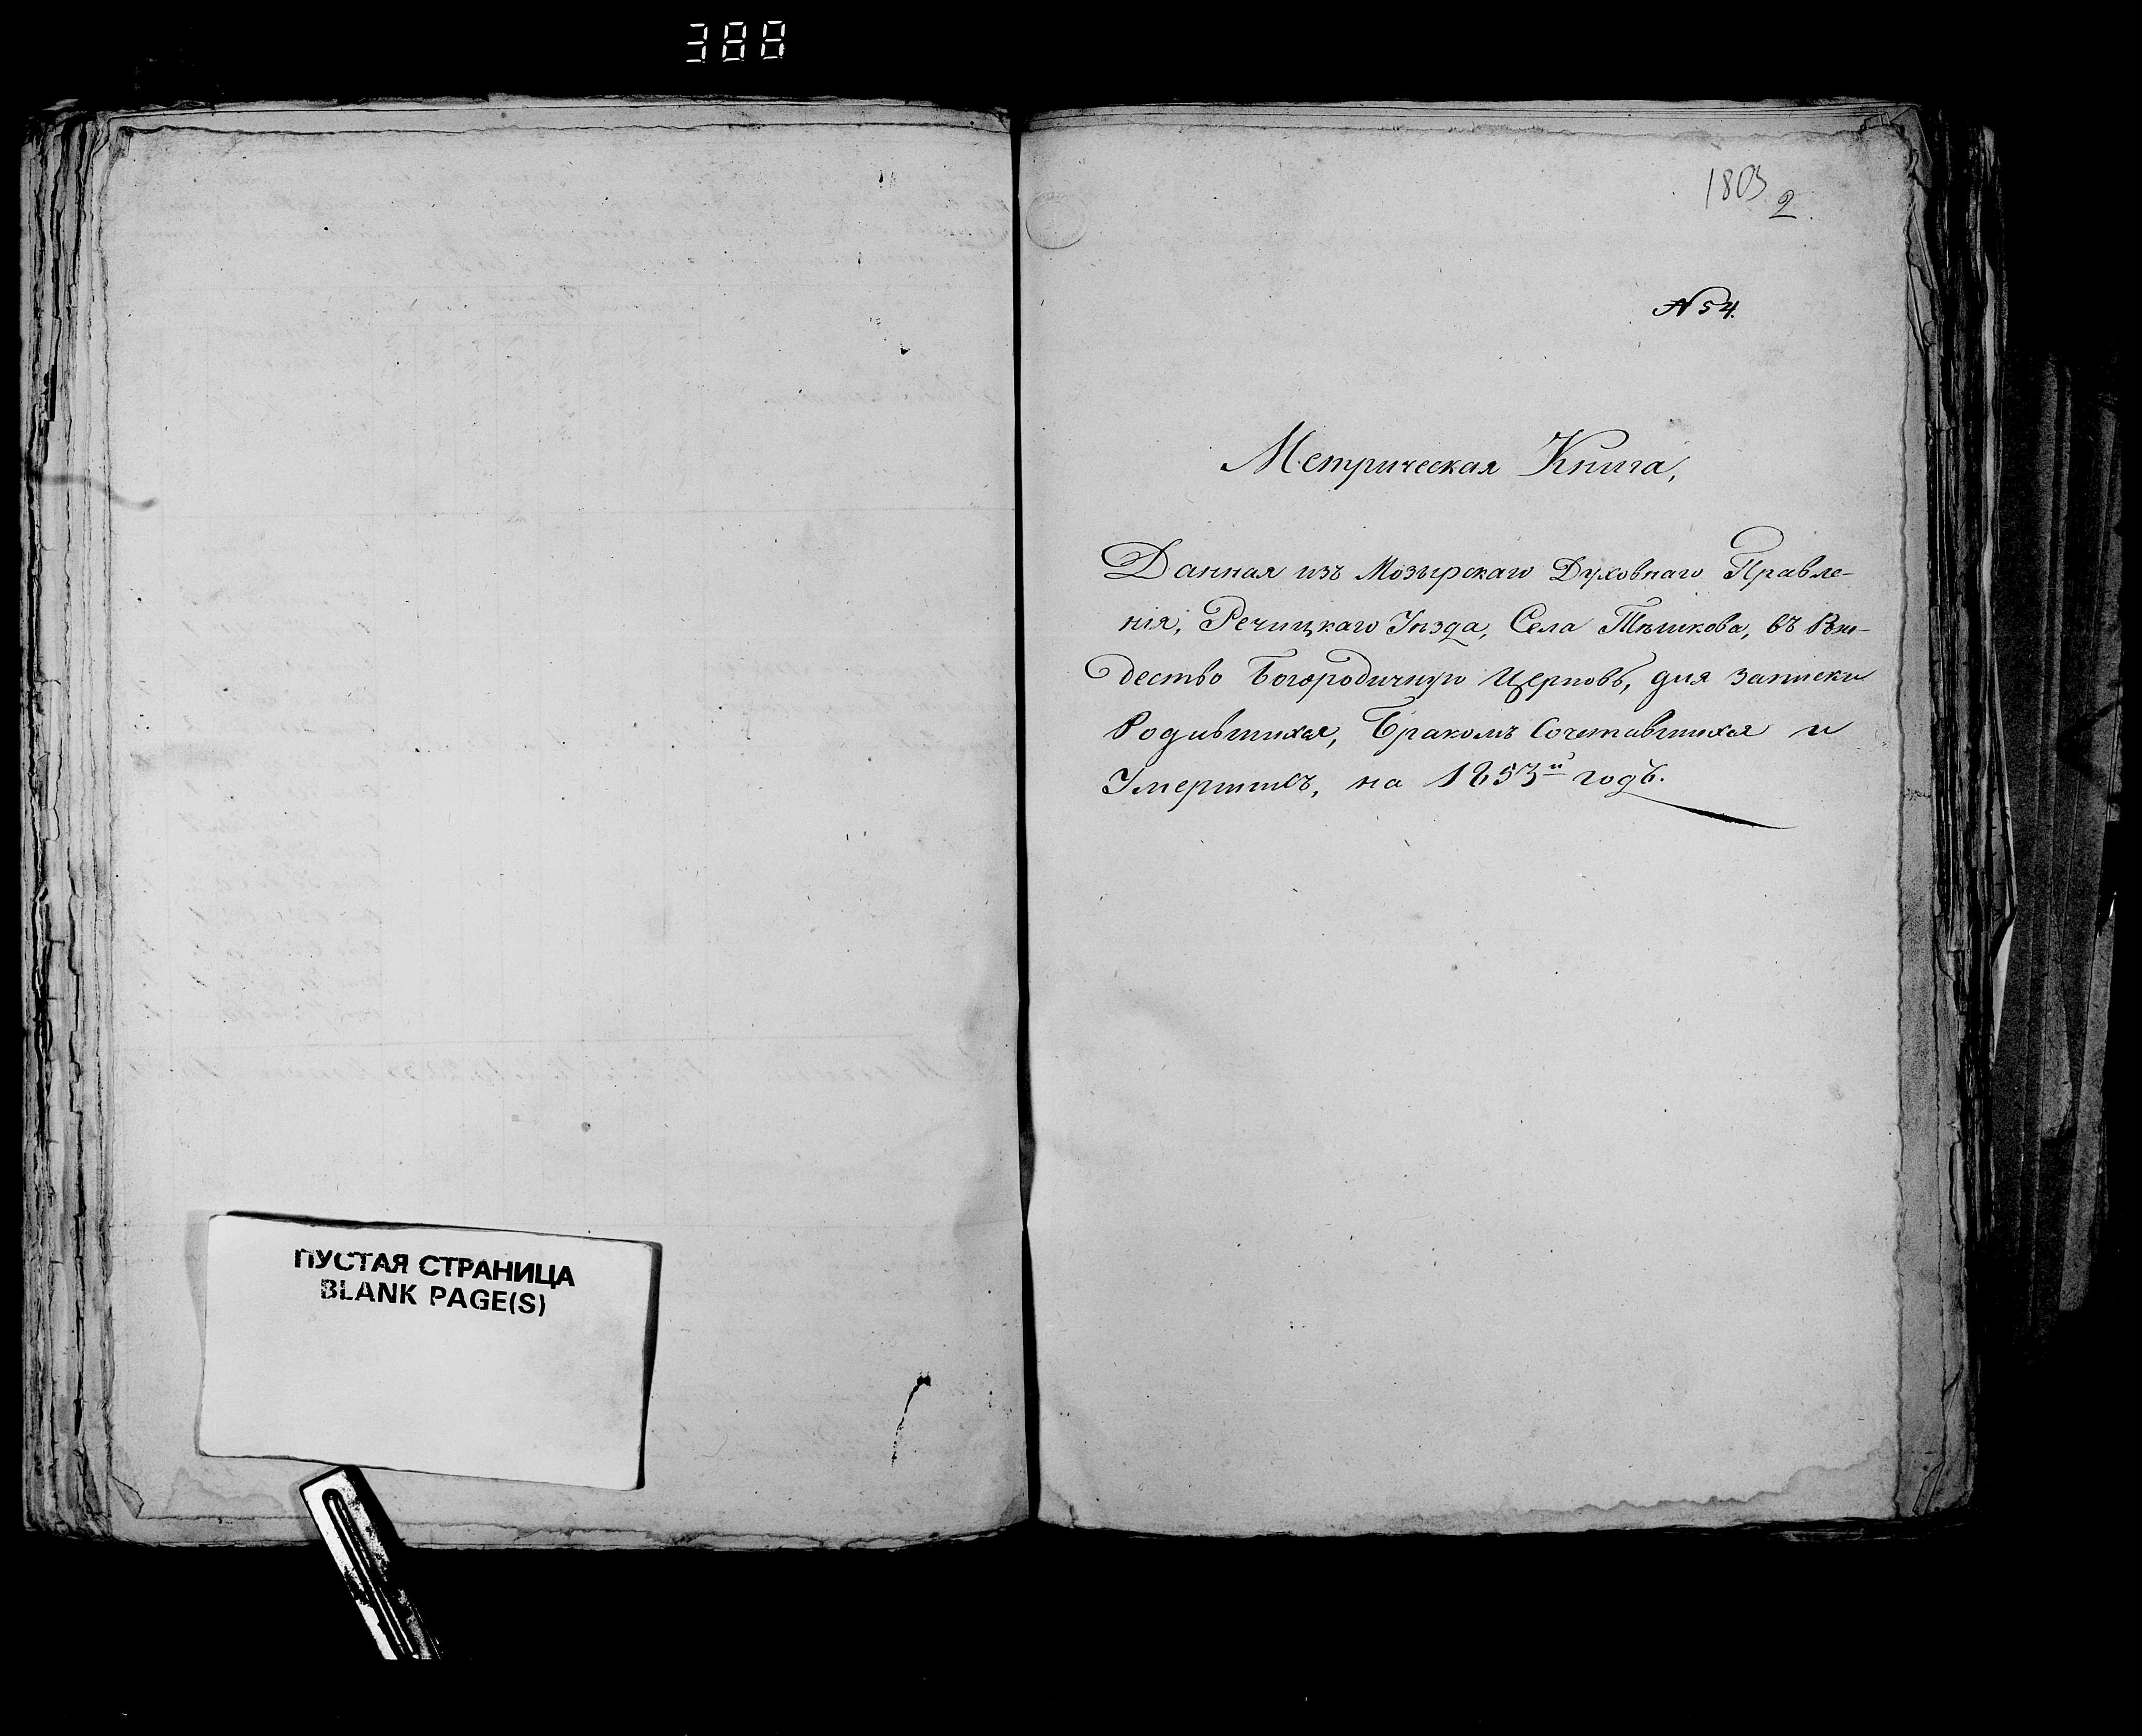 388
ПУСТАЯ СТРАНИЦА
BLANK PAGE(S)
1803
2.
№ 54.
Метрическая Книга,
Данная изъ Мозырскаго Духовнаго Правле-
нія, Речицкаго Уѣзда, Села Тѣшкова, въ Рож-
дество Богородичную Церковь, для записки
Родившихся, Бракомъ Сочетавшихся и
Умершихъ, на 1853й годъ.